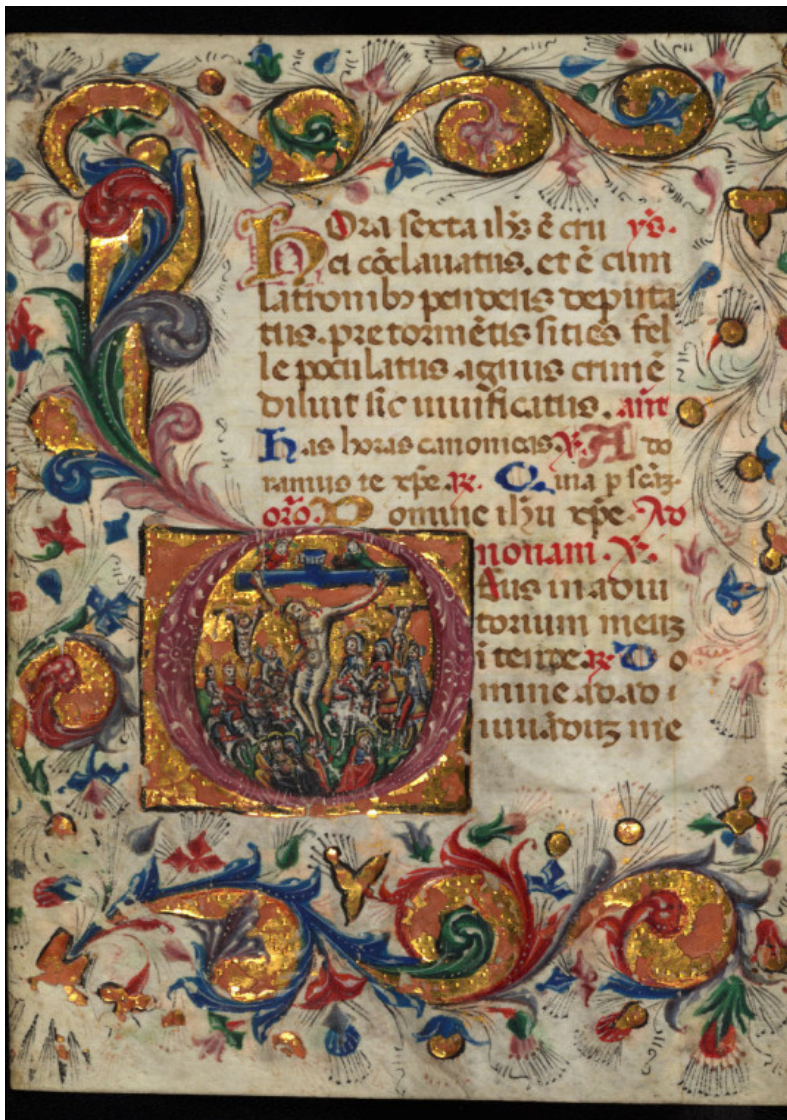 hOra sexta ihs ē cru ỹs.
ci cōclavatus. et ē cum
latronibȝ pendens deputa
tus. pre tormētis sities fel
le poculatus agnus crimē
diluit sic uiuificatus. ant
has horas canonicas. V. Ado
ramus te xp̄e. R. Quia p scāȝ.
oro. Domine ihu xp̄e. Ad
nonam. V.
Deus in adiu
torium meuȝ
ītende. R. Do
mine ad ad i
uuādūȝ me